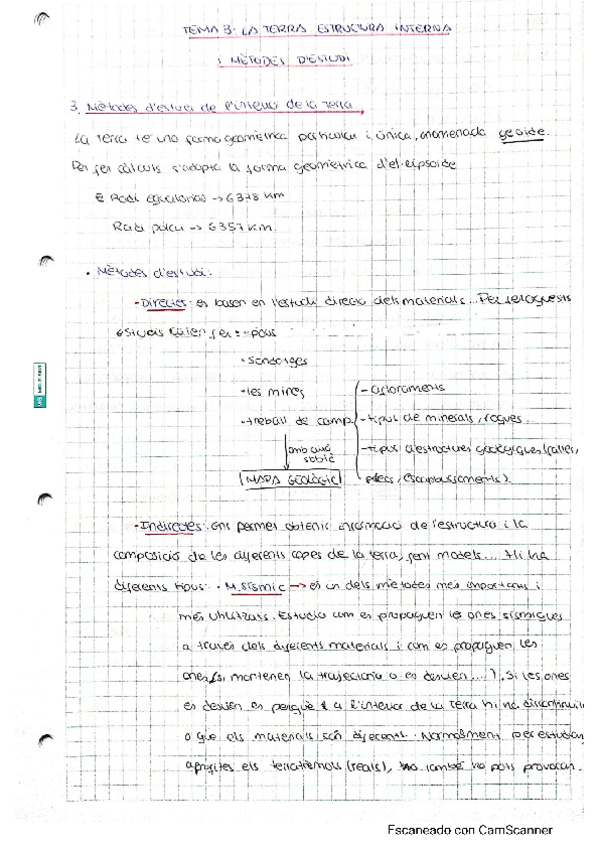 TEMA 3: LA TERRA ESTRUCTURA INTERNA
I MÈTODES D'ESTUDI
3. Mètodes d'estudi de l'interior de la terra.
La terra te una forma geometrica particular i única, anomenada geoide.
Per fer càlculs s'adapta la forma geometrica d'el·lipsoide
Radi equatorial -> 6378 km
Radi polar -> 6357 km.
• Mètodes d'estudi:
- Directes: es basen en l'estudi directe dels materials... Per fer aquests
estudis calen fer: pous
• Sondatges
- les mines
- treball de camp
- afloraments
- tipus de minerals, roques...
amb això
sabié
- tipus d'estructures geològiques (falles,
plecs, encavalcaments).
MAPA GEOLÒGIC
- Indirectes: Ens permet obtenir informació de l'estructura i la
composició de les diferents capes de la terra, fent models... Hi ha
diferents tipus: • M. sísmic -> es un dels mètodes més importants i
més utilitzats. Estudia com es propaguen les ones sísmiques
a través dels diferents materials i com es propaguen les
ones (si mantenen la trajectoria o es desvien...). Si les ones
es desvien es perquè a l'interior de la terra hi ha discontinuï
o que els materials són diferents. Normalment per estudiar
aprofites els terratrèmols (reals), també ho pots provocar.
Escaneado con CamScanner